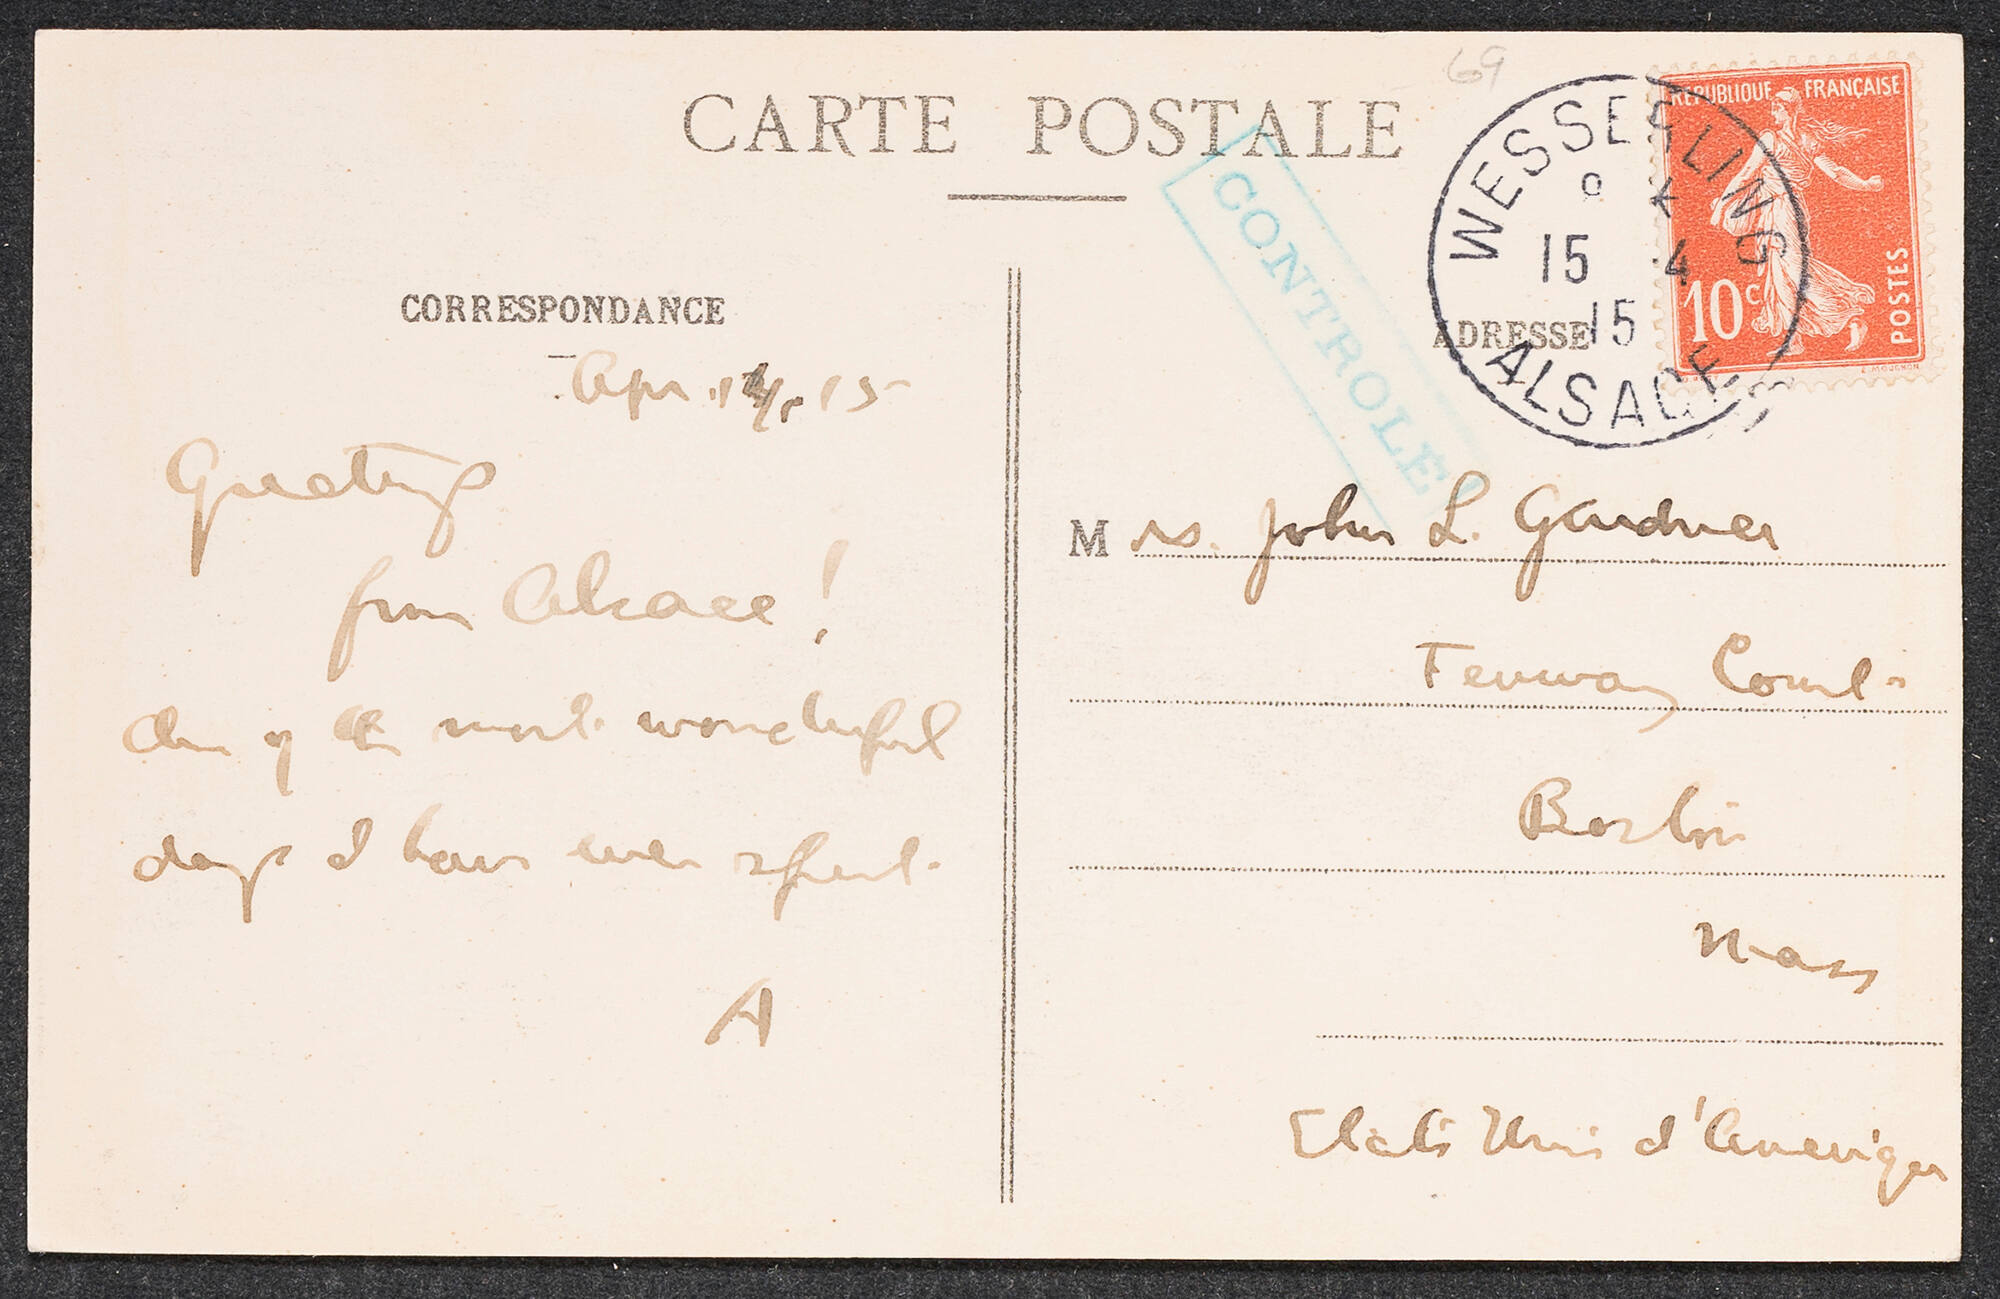 69
CARTE POSTALE
CONTROLÉ
WESSERLING
15 4
15
ALSACE
REPUBLIQUE FRANÇAISE
10c
POSTES
E. MOUCHON
CORRESPONDANCE
ADRESSE
Apr. 15
Greetings
from Alsace!
One of the most wonderful
days I have ever spent.
A
Mrs. John L. Gardner
Fenway Court
Boston
Mass
Etats Unis d'Amerique